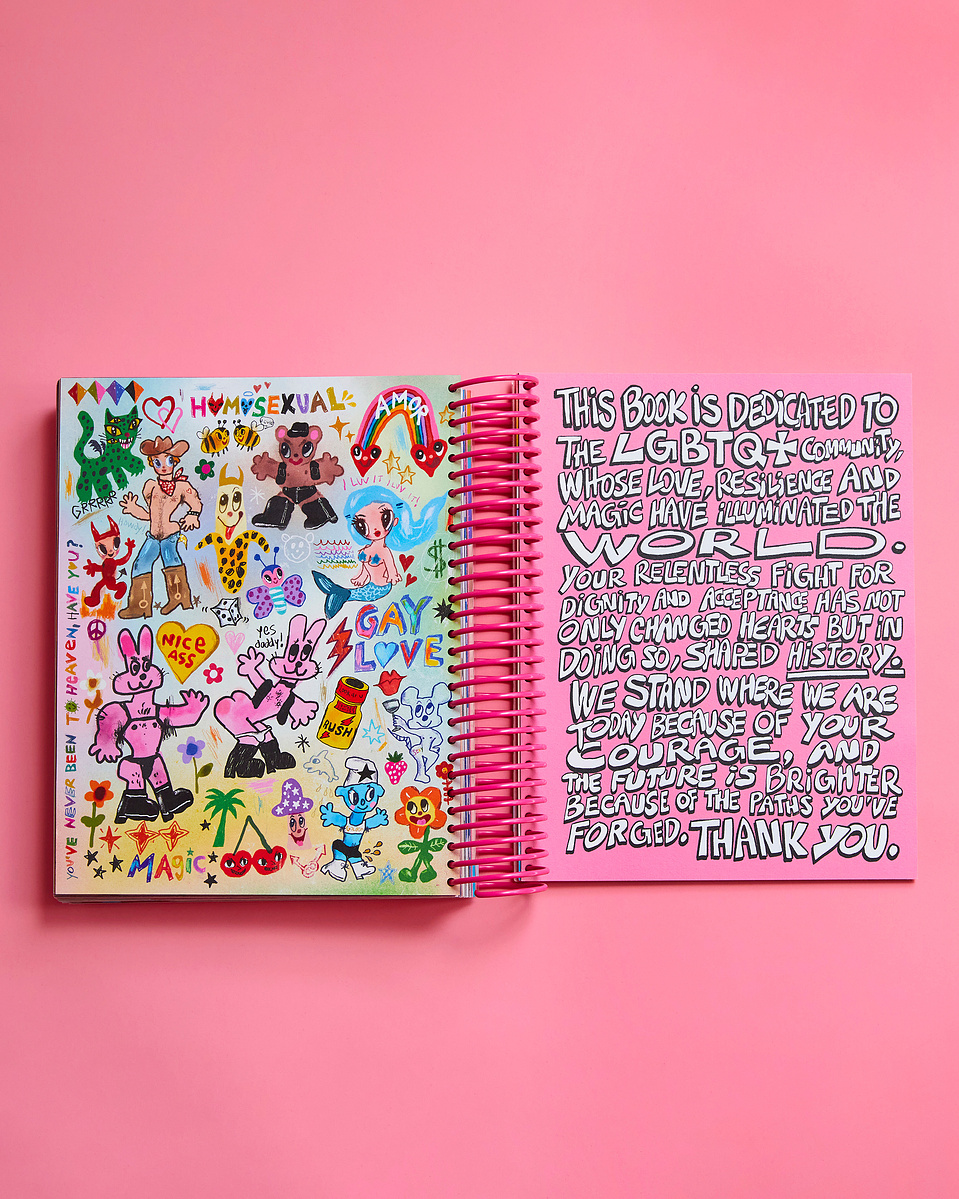 HOMOSEXUAL
AMOR
GRRRRR
howdy
I LUV IT I LUV IT!
$
NICE
ASS
yes
daddy!
GAY
LOVE
RUSH
YOU'VE NEVER BEEN TO HEAVEN, HAVE YOU?
MAGIC
THIS BOOK IS DEDICATED TO
THE LGBTQ+ COMMUNITY,
WHOSE LOVE, RESILIENCE AND
MAGIC HAVE ILLUMINATED THE
WORLD.
YOUR RELENTLESS FIGHT FOR
DIGNITY AND ACCEPTANCE HAS NOT
ONLY CHANGED HEARTS BUT IN
DOING SO, SHAPED HISTORY.
WE STAND WHERE WE ARE
TODAY BECAUSE OF YOUR
COURAGE, AND
THE FUTURE IS BRIGHTER
BECAUSE OF THE PATHS YOU'VE
FORGED. THANK YOU.